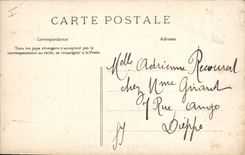 I
CARTE POSTALE
Correspondance
Adresse
Tous les pays étrangers n'acceptent pas la correspondance
au recto, se renseigner à la Poste.
Melle Adrienne Recourat
chez Mme Girard
7 Rue Arago
Dieppe